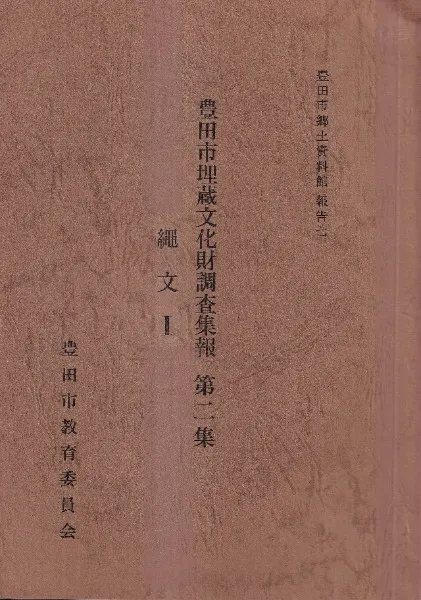 豊田市郷土資料館 報告
豊田市埋蔵文化財調査集報 第二集
縄文Ⅱ
豊田市教育委員会